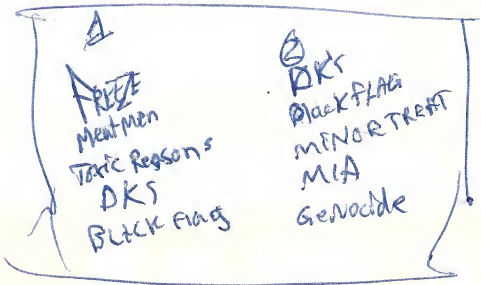 1
FREEZE
MeatMen
Toxic Reasons
DKS
BLACK FLAG
2
DK's
Black FLAG
MINOR TREAT
MIA
GeNocide